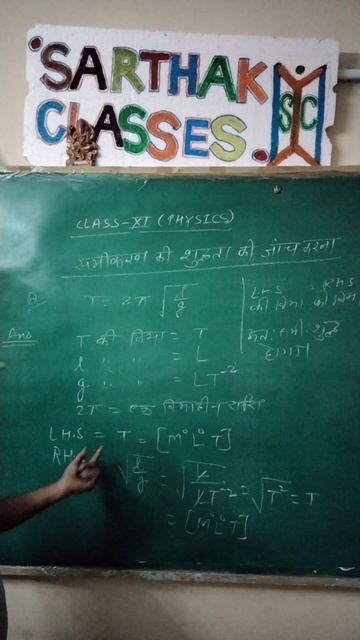 SARTHAK
CLASSES.
SC
CLASS-XI (PHYSICS)
समीकरण की शुद्धता की जांच करना
Q. T = 2π √(l/g)
LHS = RHS
की विमा की विमा
अतः समी. शुद्ध
होगा।
Ans T की विमा = T
l " " = L
g " " = LT⁻²
2π = एक विमाहीन राशि
LH.S = T = [M⁰L⁰T]
RH. √(l/g) = √(L/LT⁻²) = √T² = T
= [M⁰L⁰T]